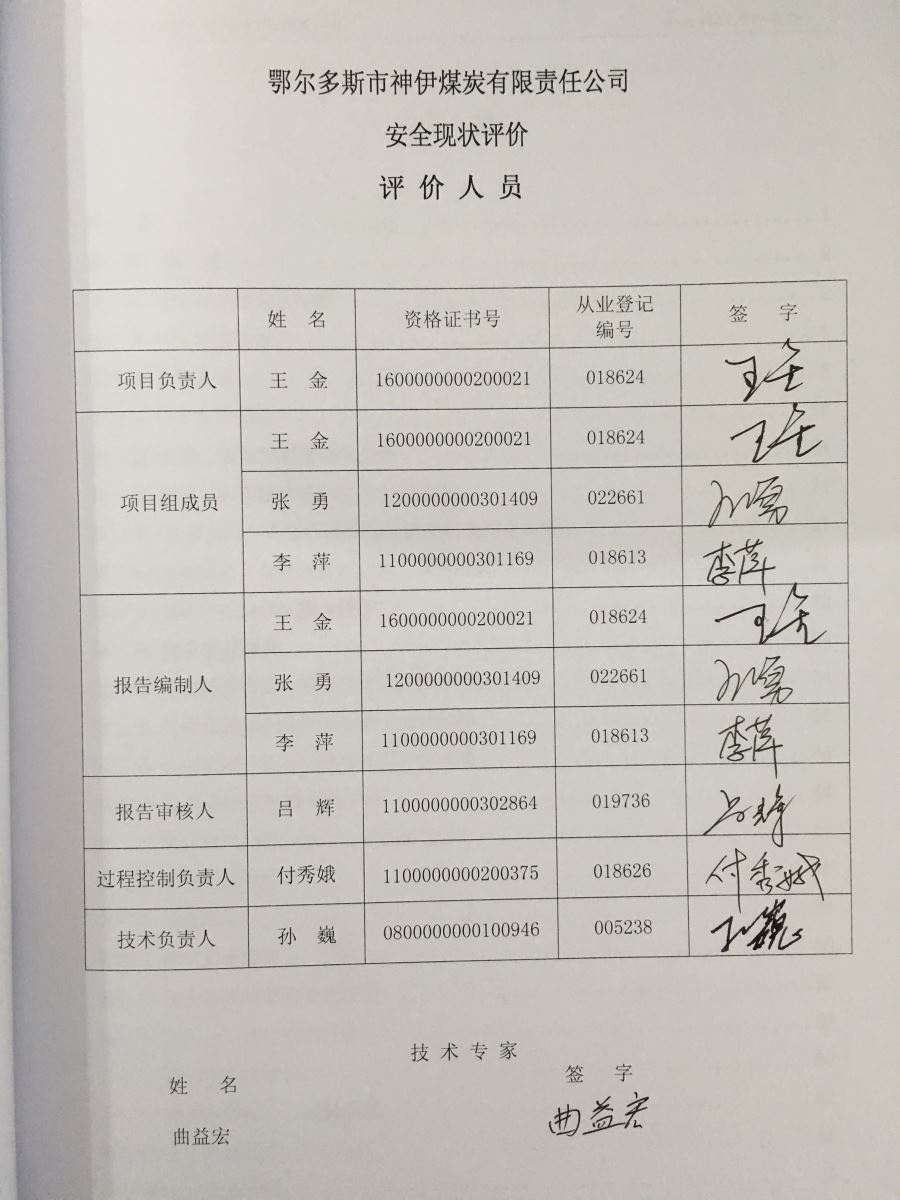 鄂尔多斯市神伊煤炭有限责任公司
安全现状评价
评价人员
姓 名 资格证书号 从业登记编号 签 字
项目负责人 王 金 1600000000200021 018624 王金
项目组成员 王 金 1600000000200021 018624 王金
张 勇 1200000000301409 022661 张勇
李 萍 1100000000301169 018613 李萍
报告编制人 王 金 1600000000200021 018624 王金
张 勇 1200000000301409 022661 张勇
李 萍 1100000000301169 018613 李萍
报告审核人 吕 辉 1100000000302864 019736 吕辉
过程控制负责人 付秀娥 1100000000200375 018626 付秀娥
技术负责人 孙 巍 0800000000100946 005238 孙巍
技术专家
姓 名 签 字
曲益宏 曲益宏